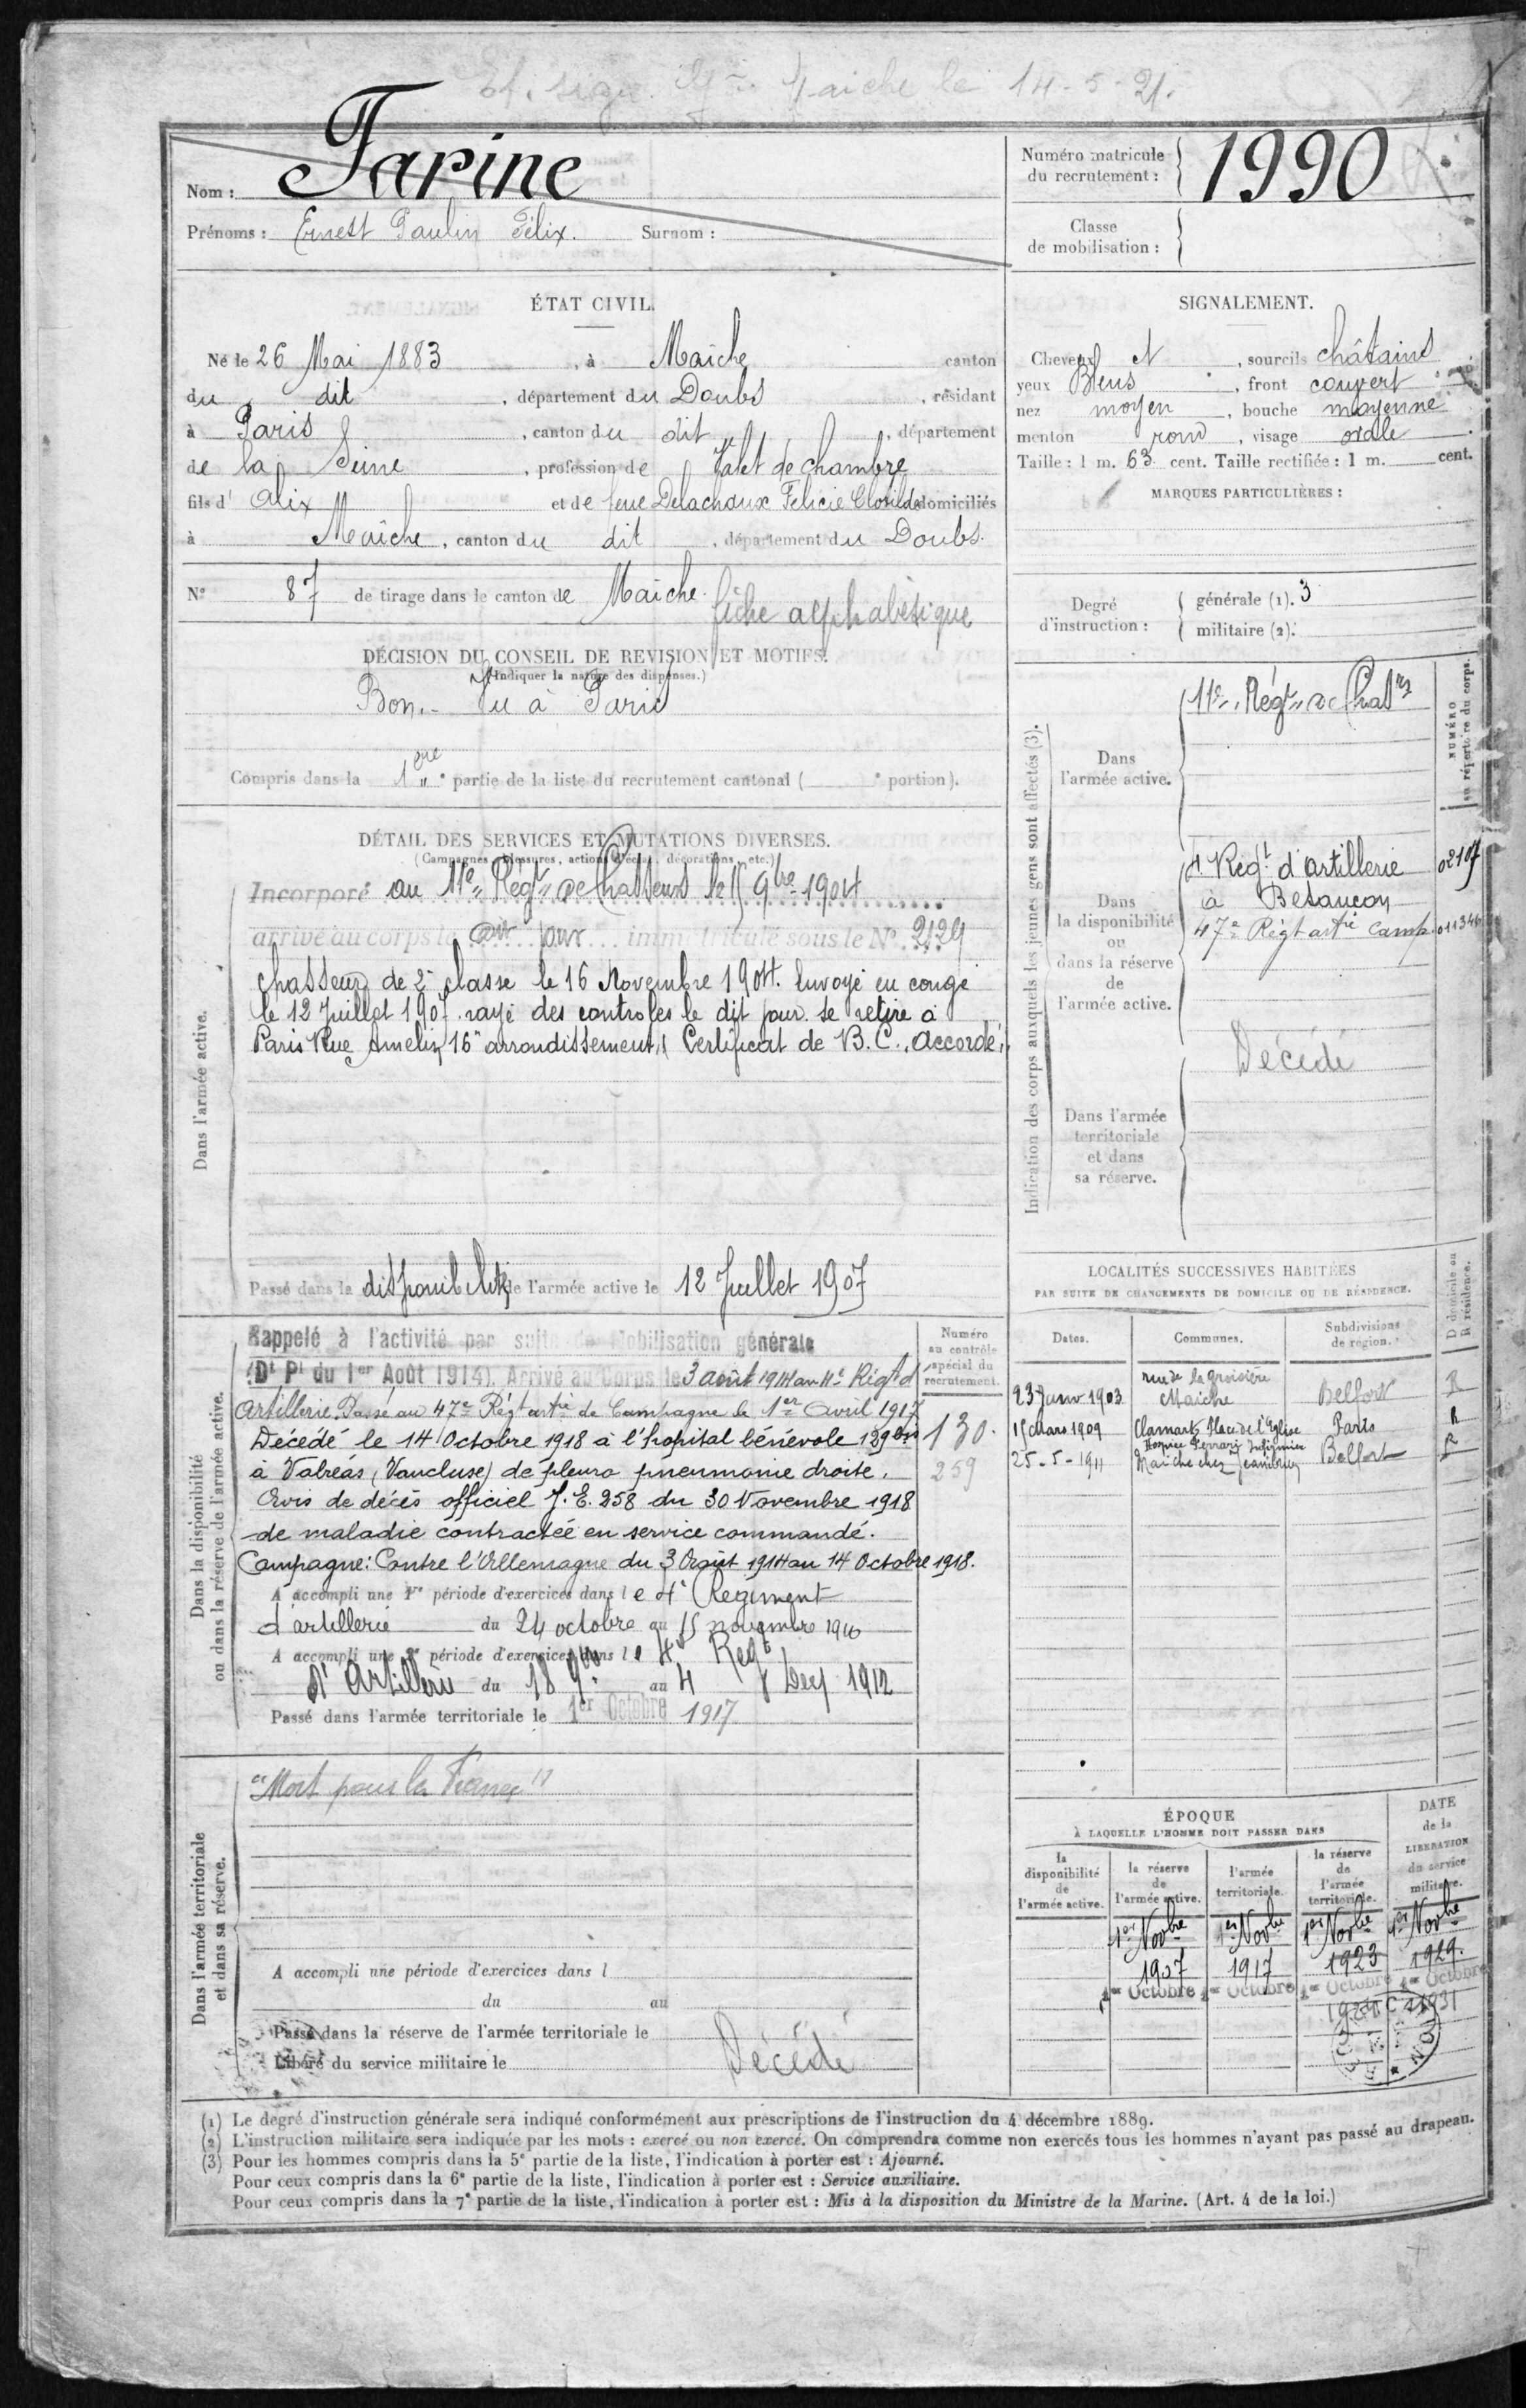 Maiche le 14-5-21.
Nom : Farine
Prénoms : Ernest Paulin Félix. Surnom :
Numéro matricule du recrutement : 1990
Classe de mobilisation :
ÉTAT CIVIL.
Né le 26 Mai 1883, à Maîche canton
du dit, département du Doubs, résidant
à Paris, canton du dit, département
de la Seine, profession de Valet de chambre
fils d' Alix et de feue Delachaux Felicie Clotilde domiciliés
à Maîche, canton du dit, département du Doubs.
N° 87 de tirage dans le canton de Maiche.
fiche alphabétique
SIGNALEMENT.
Cheveux et, sourcils châtains
yeux Bleus, front couvert
nez moyen, bouche moyenne
menton rond, visage ovale.
Taille : 1 m. 63 cent. Taille rectifiée : 1 m. cent.
MARQUES PARTICULIÈRES :
Degré d'instruction :
générale (1). 3
militaire (2).
DÉCISION DU CONSEIL DE REVISION ET MOTIFS.
(Indiquer la nature des dispenses.)
Bon.- Vu à Paris
Compris dans la 1ère partie de la liste du recrutement cantonal ( e portion).
DÉTAIL DES SERVICES ET MUTATIONS DIVERSES.
(Campagnes, blessures, actions d'éclat, décorations, etc.)
Dans l'armée active.
Incorporé au 11e Régt de Chasseurs le 15 9bre 1904
arrivé au corps le dit jour immatriculé sous le N° 2129
chasseur de 2e classe le 16 Novembre 1904. Envoyé en congé
le 12 Juillet 1907. rayé des controles le dit jour. se retire à
Paris Rue Amelin 16" arrondissement, Certificat de B. C. "Accordé"
Passé dans la disponibilité de l'armée active le 12 Juillet 1907
Indication des corps auxquels les jeunes gens sont affectés (3).
NUMÉRO au répertoire du corps.
Dans l'armée active.
11e Régt de Chasrs
Dans la disponibilité ou dans la réserve de l'armée active.
4e Regt d'artillerie 02107
à Besançon
47e Régt artie Camp. 011346
Dans l'armée territoriale et dans sa réserve.
Décédé
Dans la disponibilité ou dans la réserve de l'armée active.
Numéro au contrôle spécial du recrutement.
Rappelé à l'activité par suite de Mobilisation générale
(Dt Pl du 1er Août 1914). Arrivé au Corps le 3 août 1914 au 4e Régt d'
Artillerie. Passé au 47e Régt artie de Campagne le 1er Avril 1917
Décédé le 14 Octobre 1918 à l'hopital bénévole 129bis 130.
à Valréas (Vaucluse) de pleuro pneumonie droite. 259
Avis de décès officiel J.E. 258 du 30 Novembre 1918
de maladie contractée en service commandé.
Campagne : Contre l'Allemagne du 3 Août 1914 au 14 Octobre 1918.
A accompli une 1re période d'exercices dans le 4e Régiment
d'artillerie du 24 octobre au 15 novembre 1910
A accompli une 2e période d'exercices dans le 4e Regt
d'Artillerie du 18 9bre au 4 Dec 1912
Passé dans l'armée territoriale le 1er Octobre 1917
LOCALITÉS SUCCESSIVES HABITÉES
PAR SUITE DE CHANGEMENTS DE DOMICILE OU DE RÉSIDENCE.
Dates. Communes. Subdivisions de région. D domicile ou R résidence.
rue de la Croisière
23 Janv 1903 Maiche Belfort R
15 Mars 1909 Clamart, Place de l'Eglise Paris R
Hospice Ferrari Infirmier
25-5-1911 Maiche chez Belfort R
Dans l'armée territoriale et dans sa réserve.
"Mort pour la France"
A accompli une période d'exercices dans l
du au
Passé dans la réserve de l'armée territoriale le
Libéré du service militaire le
Décédé
ÉPOQUE
À LAQUELLE L'HOMME DOIT PASSER DANS
la disponibilité de l'armée active.
la réserve de l'armée active.
l'armée territoriale.
la réserve de l'armée territoriale.
DATE de la LIBÉRATION du service militaire.
1er Novbre 1er Novbre 1er Novbre 1er Novbre
1907 1917 1923 1929.
1er Octobre 1er Octobre 1er Octobre 1er Octobre
1931
(1) Le degré d'instruction générale sera indiqué conformément aux prescriptions de l'instruction du 4 décembre 1889.
(2) L'instruction militaire sera indiquée par les mots : exercé ou non exercé. On comprendra comme non exercés tous les hommes n'ayant pas passé au drapeau.
(3) Pour les hommes compris dans la 5e partie de la liste, l'indication à porter est : Ajourné.
Pour ceux compris dans la 6e partie de la liste, l'indication à porter est : Service auxiliaire.
Pour ceux compris dans la 7e partie de la liste, l'indication à porter est : Mis à la disposition du Ministre de la Marine. (Art. 4 de la loi.)